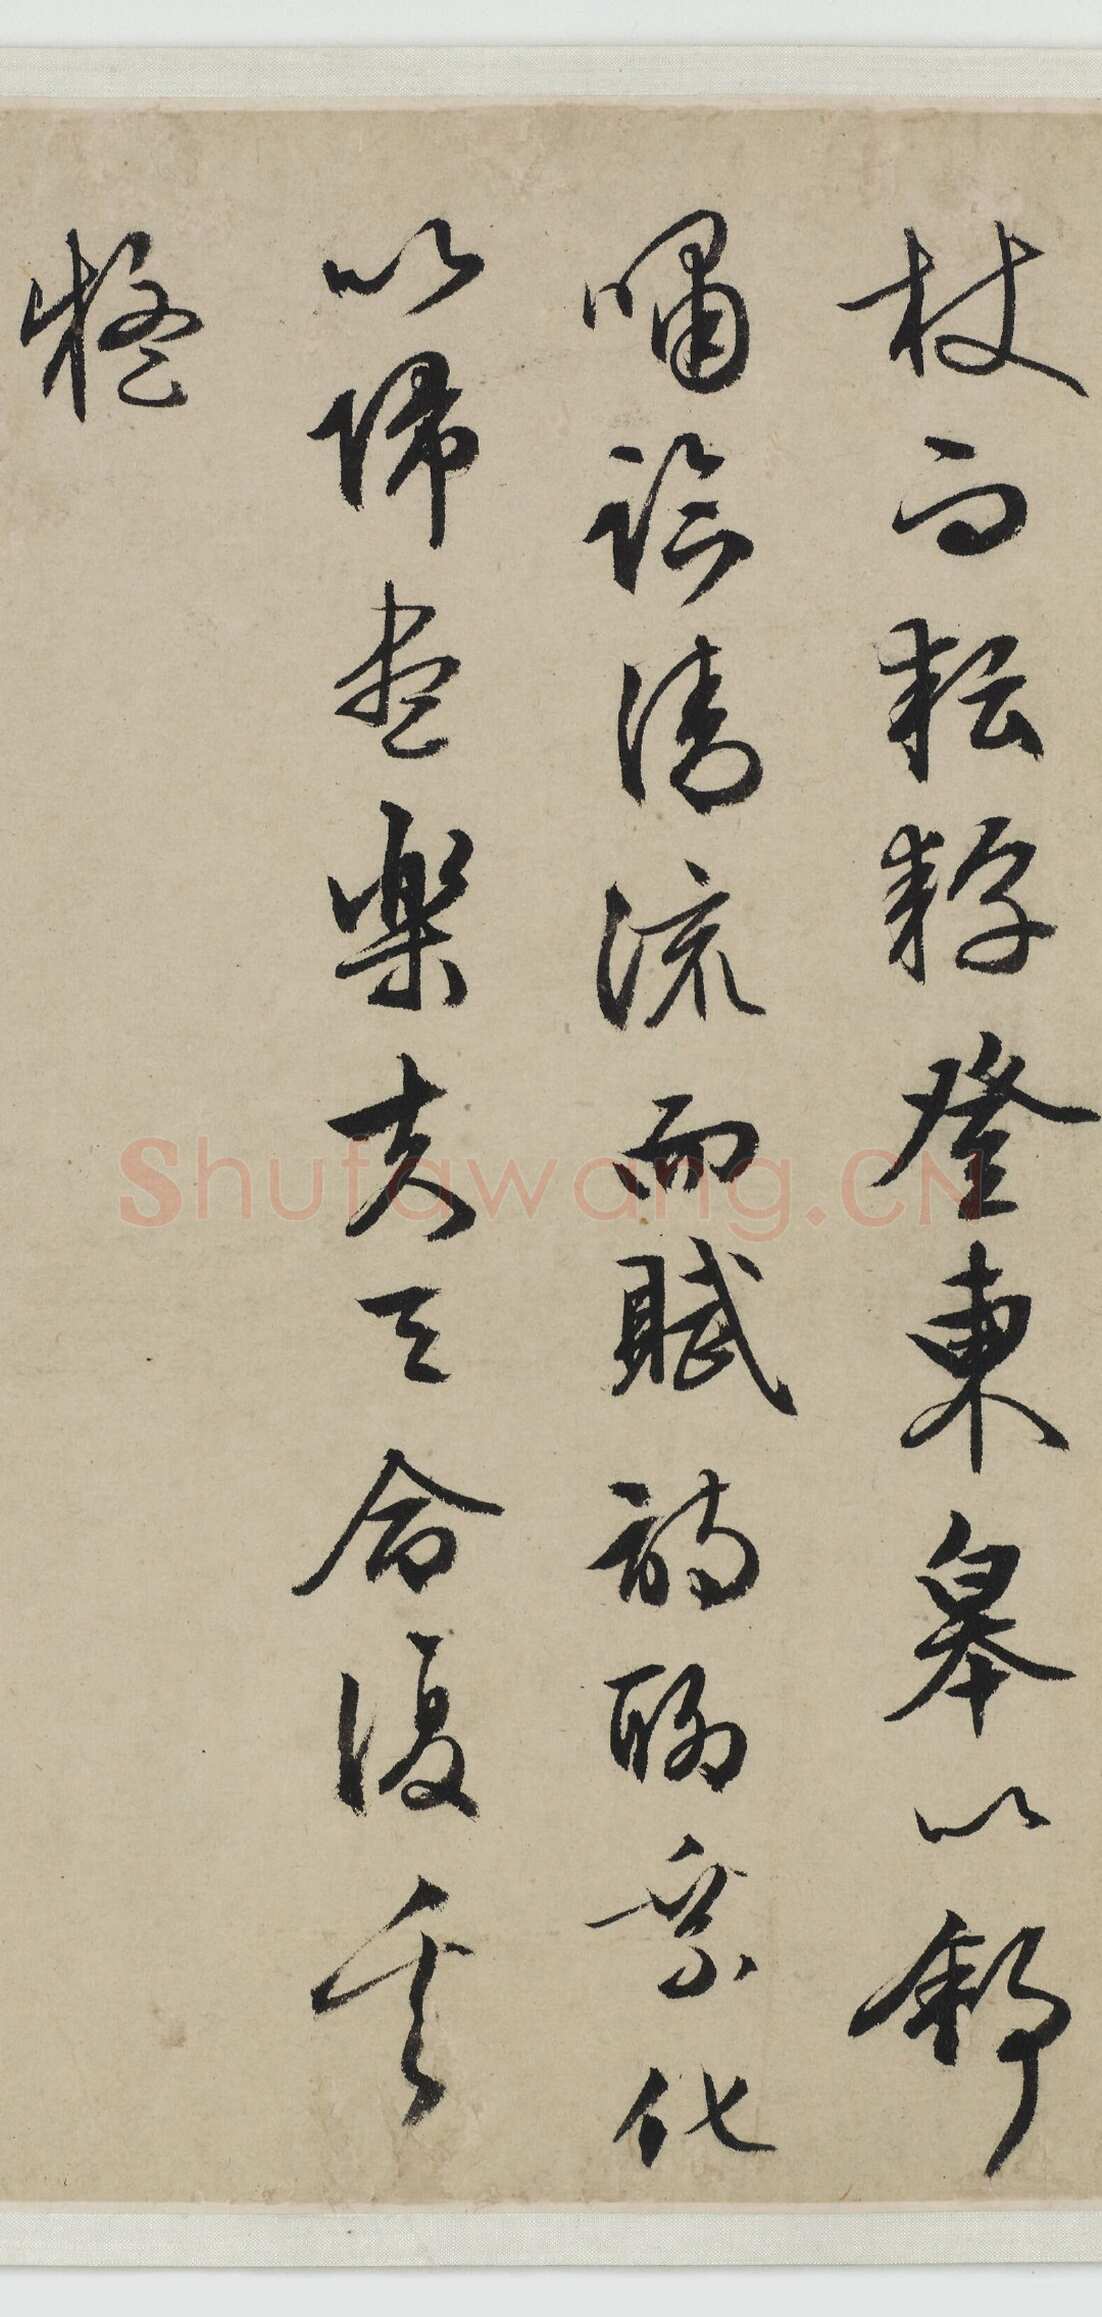 杖而耘耔登東皋以舒
嘯臨清流而賦詩聊乘化
以歸盡樂夫天命復奚
疑
Shufawang.CN